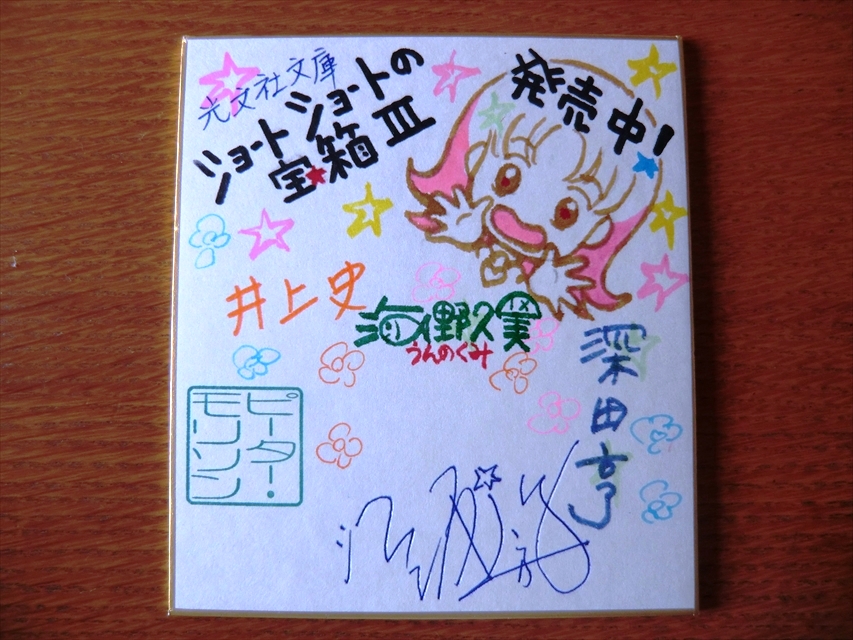 光文社文庫
ショートショートの
宝箱Ⅲ
発売中!
井上史
海野久実
うんのくみ
深田亨
ピーター・
モリソン